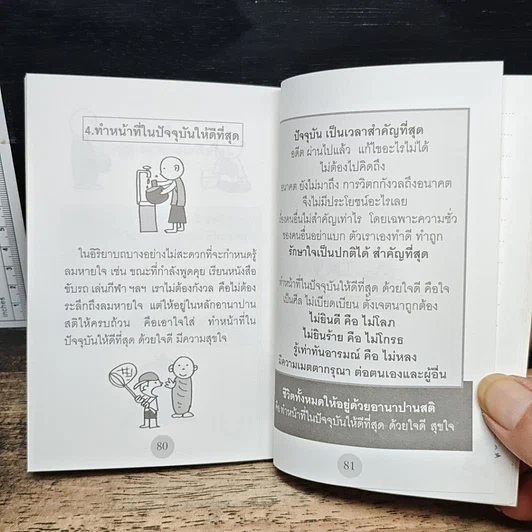 4.ทำหน้าที่ในปัจจุบันให้ดีที่สุด
ในอิริยาบถบางอย่างไม่สะดวกที่จะกำหนดรู้
ลมหายใจ เช่น ขณะที่กำลังพูดคุย เรียนหนังสือ
ขับรถ เล่นกีฬา ฯลฯ เราไม่ต้องกังวล คือไม่ต้อง
ระลึกถึงลมหายใจ แต่ให้อยู่ในหลักอานาปาน
สติให้ครบถ้วน คือเอาใจใส่ ทำหน้าที่ใน
ปัจจุบันให้ดีที่สุด ด้วยใจดี มีความสุขใจ
80
ปัจจุบัน เป็นเวลาสำคัญที่สุด
อดีต ผ่านไปแล้ว แก้ไขอะไรไม่ได้
ไม่ต้องไปคิดถึง
อนาคต ยังไม่มาถึง การวิตกกังวลถึงอนาคต
จึงไม่มีประโยชน์อะไรเลย
เรื่องคนอื่นไม่สำคัญเท่าไร โดยเฉพาะความชั่ว
ของคนอื่นอย่าแบก ตัวเราเองทำดี ทำถูก
รักษาใจเป็นปกติได้ สำคัญที่สุด
ทำหน้าที่ในปัจจุบันให้ดีที่สุด ด้วยใจดี คือใจ
เป็นศีล ไม่เบียดเบียน ตั้งเจตนาถูกต้อง
ไม่ยินดี คือ ไม่โลภ
ไม่ยินร้าย คือ ไม่โกรธ
รู้เท่าทันอารมณ์ คือ ไม่หลง
มีความเมตตากรุณา ต่อตนเองและผู้อื่น
ชีวิตทั้งหมดให้อยู่ด้วยอานาปานสติ
คือ ทำหน้าที่ในปัจจุบันให้ดีที่สุด ด้วยใจดี สุขใจ
81